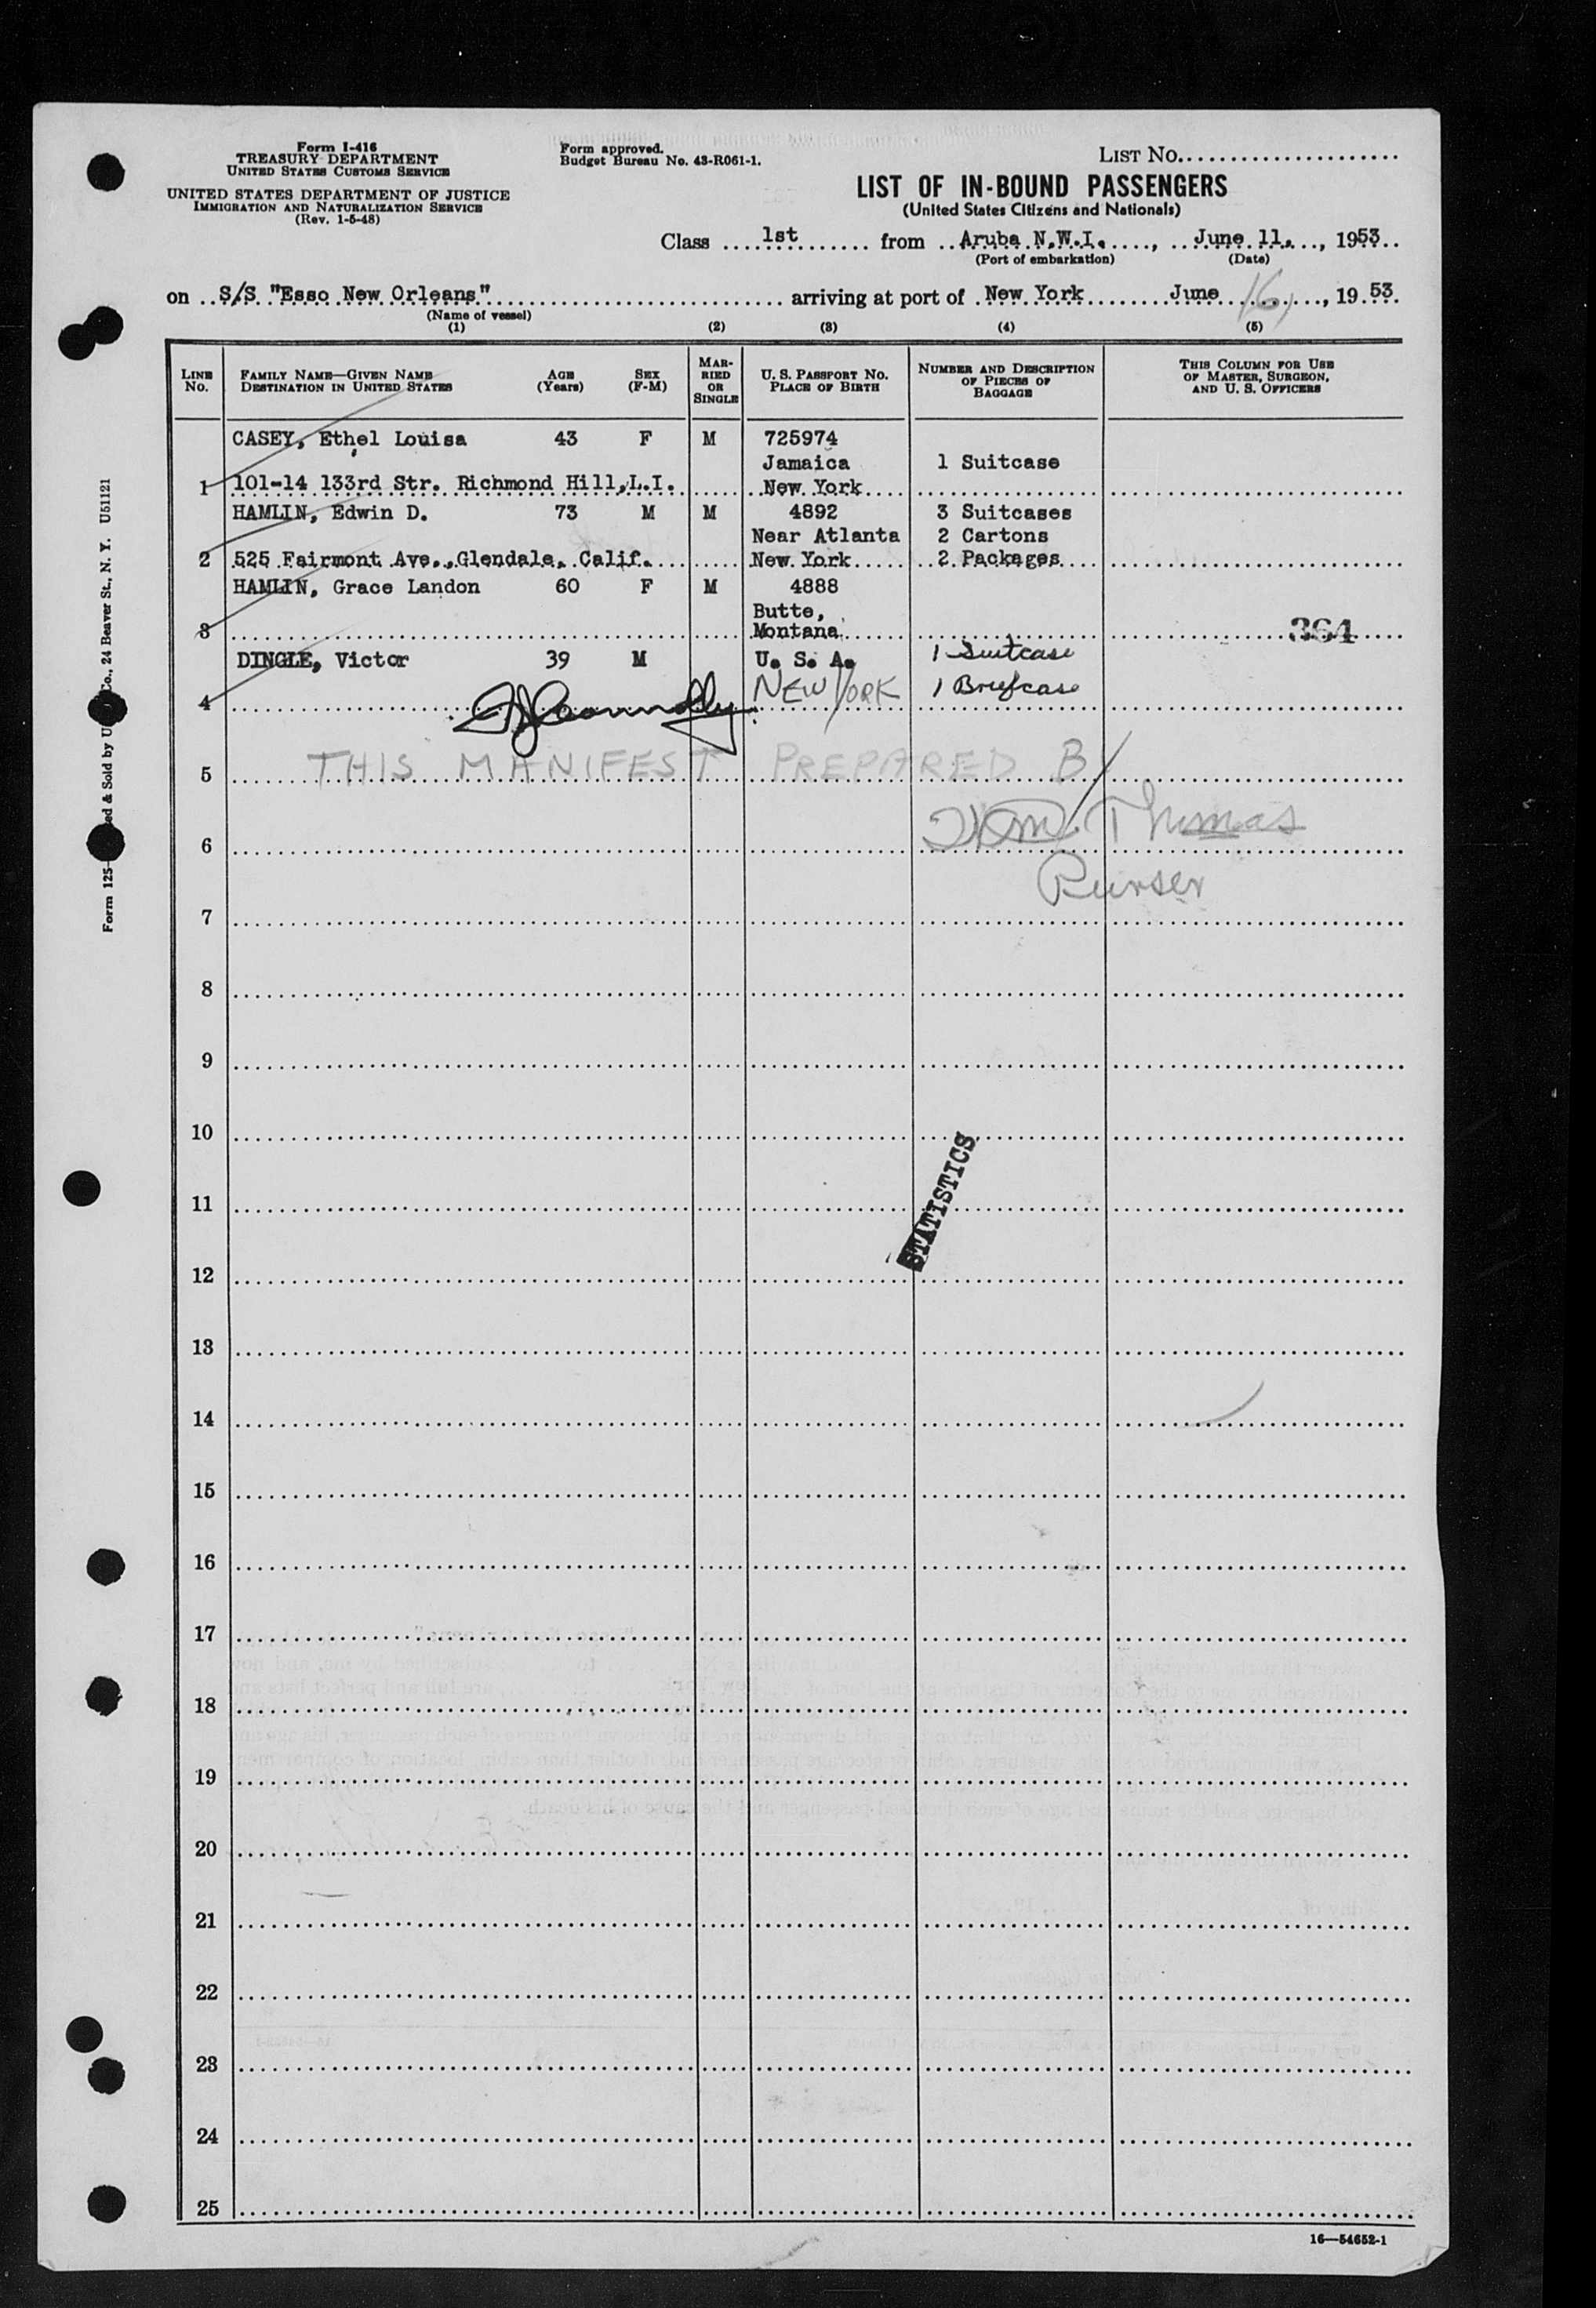 Form I-416
TREASURY DEPARTMENT
UNITED STATES CUSTOMS SERVICE
UNITED STATES DEPARTMENT OF JUSTICE
IMMIGRATION AND NATURALIZATION SERVICE
(Rev. 1-5-48)
Form approved.
Budget Bureau No. 43-R061-1.
LIST No.
LIST OF IN-BOUND PASSENGERS
(United States Citizens and Nationals)
Class 1st from Aruba N.W.I., June 11, 1953
(Port of embarkation) (Date)
on S/S "Esso New Orleans" arriving at port of New York June 16, 1953
(Name of vessel)
(1) (2) (3) (4) (5)
LINE No. FAMILY NAME—GIVEN NAME DESTINATION IN UNITED STATES AGE (Years) SEX (F-M) MARRIED OR SINGLE U. S. PASSPORT NO. PLACE OF BIRTH NUMBER AND DESCRIPTION OF PIECES OF BAGGAGE THIS COLUMN FOR USE OF MASTER, SURGEON, AND U. S. OFFICERS
CASEY, Ethel Louisa 43 F M 725974
Jamaica 1 Suitcase
1 101-14 133rd Str. Richmond Hill, L.I. New York
HAMLIN, Edwin D. 73 M M 4892 3 Suitcases
Near Atlanta 2 Cartons
2 525 Fairmont Ave., Glendale, Calif. New York 2 Packages
HAMLIN, Grace Landon 60 F M 4888
Butte,
3 Montana 364
DINGLE, Victor 39 M U. S. A. 1 Suitcase
4 NEW YORK 1 Briefcase
5 THIS MANIFEST PREPARED BY
6 Thomas
Purser
7
8
9
10
STATISTICS
11
12
13
14
15
16
17
18
19
20
21
22
23
24
25
16—54652-1
Co., 24 Beaver St., N. Y. U51121
ed & Sold by U
Form 125-